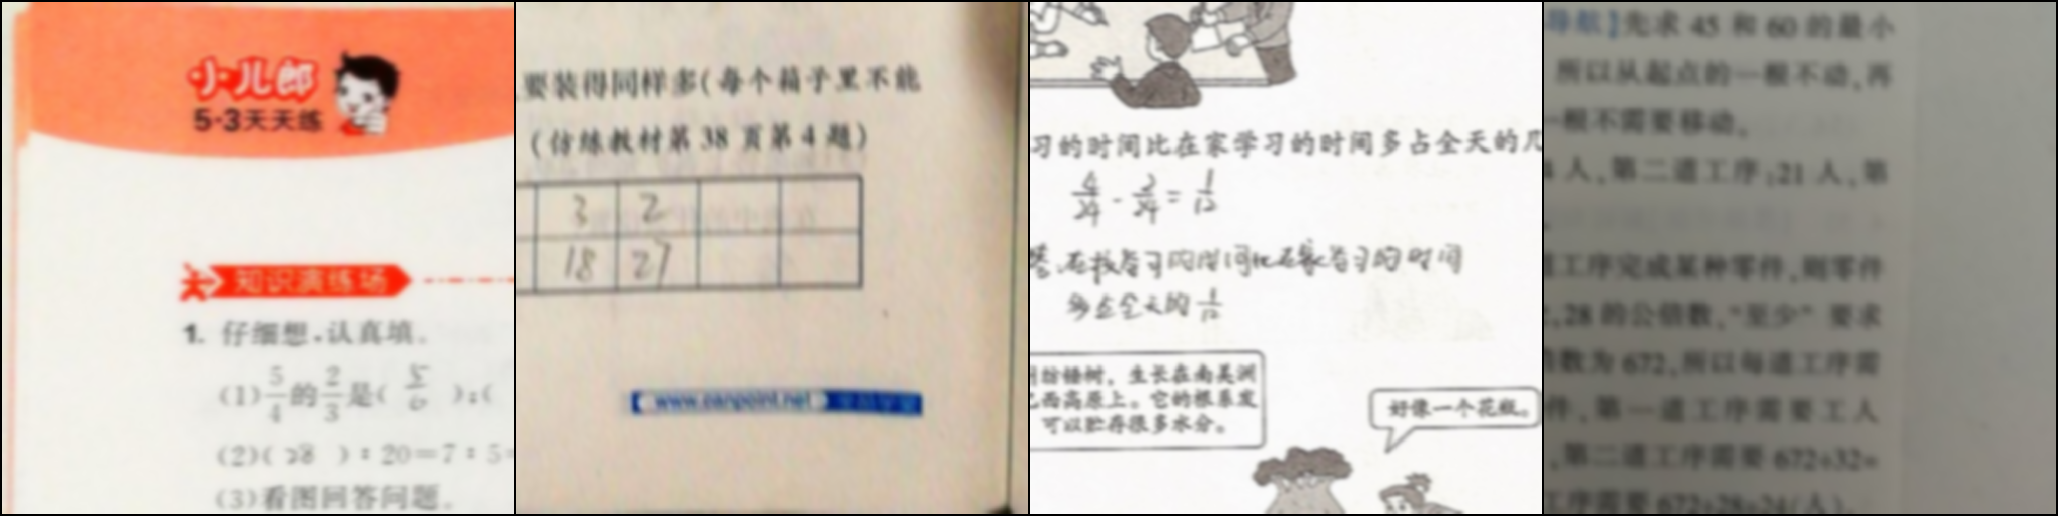 小儿郎
5·3天天练
知识演练场
1. 仔细想,认真填。
(1)5/4的2/3是(5/6);(
(2)(28):20=7:5=
(3)看图回答问题。
要装得同样多(每个箱子里不能
(仿练教材第38页第4题)
3 2
18 27
习的时间比在家学习的时间多占全天的几
4/24-2/24=1/12
答:在校学习的时间比在家学习的时间
多占全天的1/12
纺锤树,生长在南美洲
巴西高原上。它的根系发
可以贮存很多水分。
好像一个花瓶。
导航】先求 45 和 60 的最小
所以从起点的一根不动,再
一根不需要移动。
人,第二道工序:21 人,第
工序完成某种零件,则零件
,28 的公倍数,“至少”要求
倍数为 672,所以每道工序需
件,第一道工序需要工人
,第二道工序需要 672÷32=
工序需要 672÷28=24(人)。